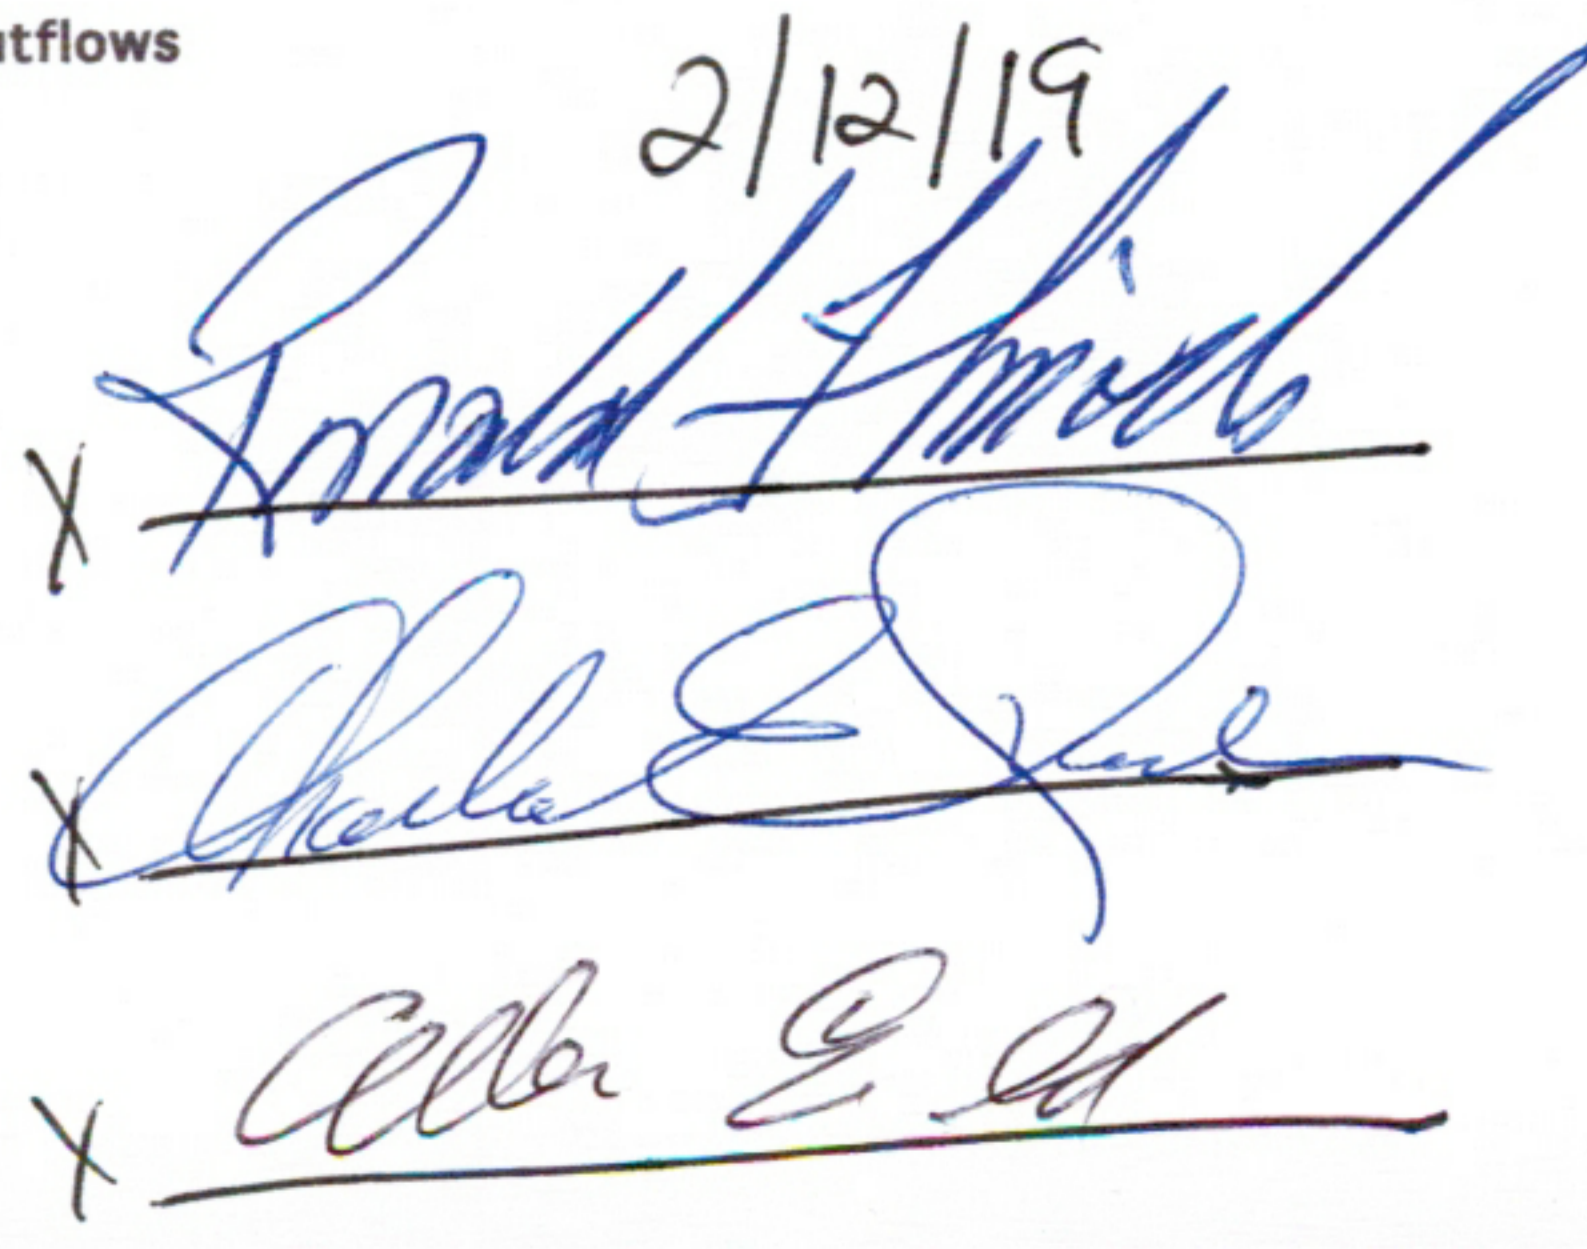 utflows
2/12/19
X Ronald F
X Charles E
X Allen E